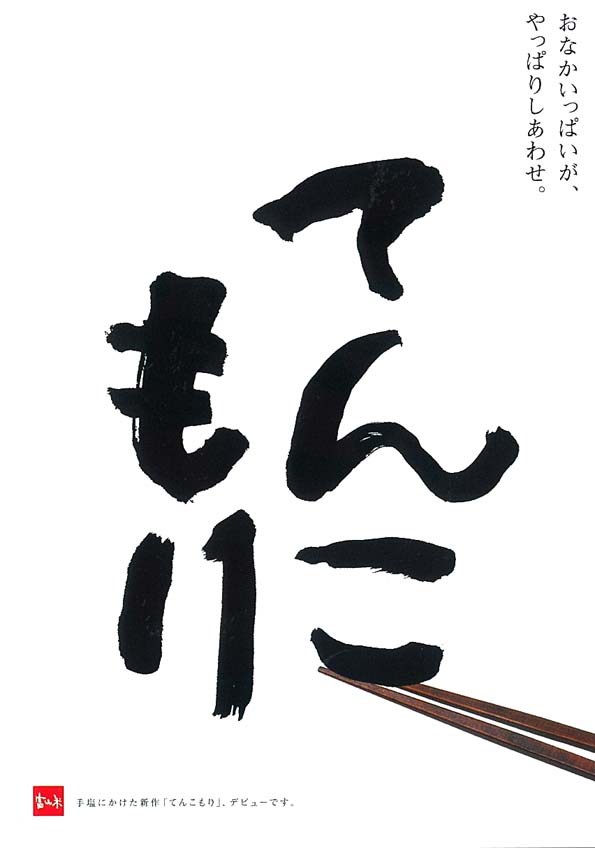 おなかいっぱいが、
やっぱりしあわせ。
てんこ
もり
富山米
手塩にかけた新作「てんこもり」、デビューです。